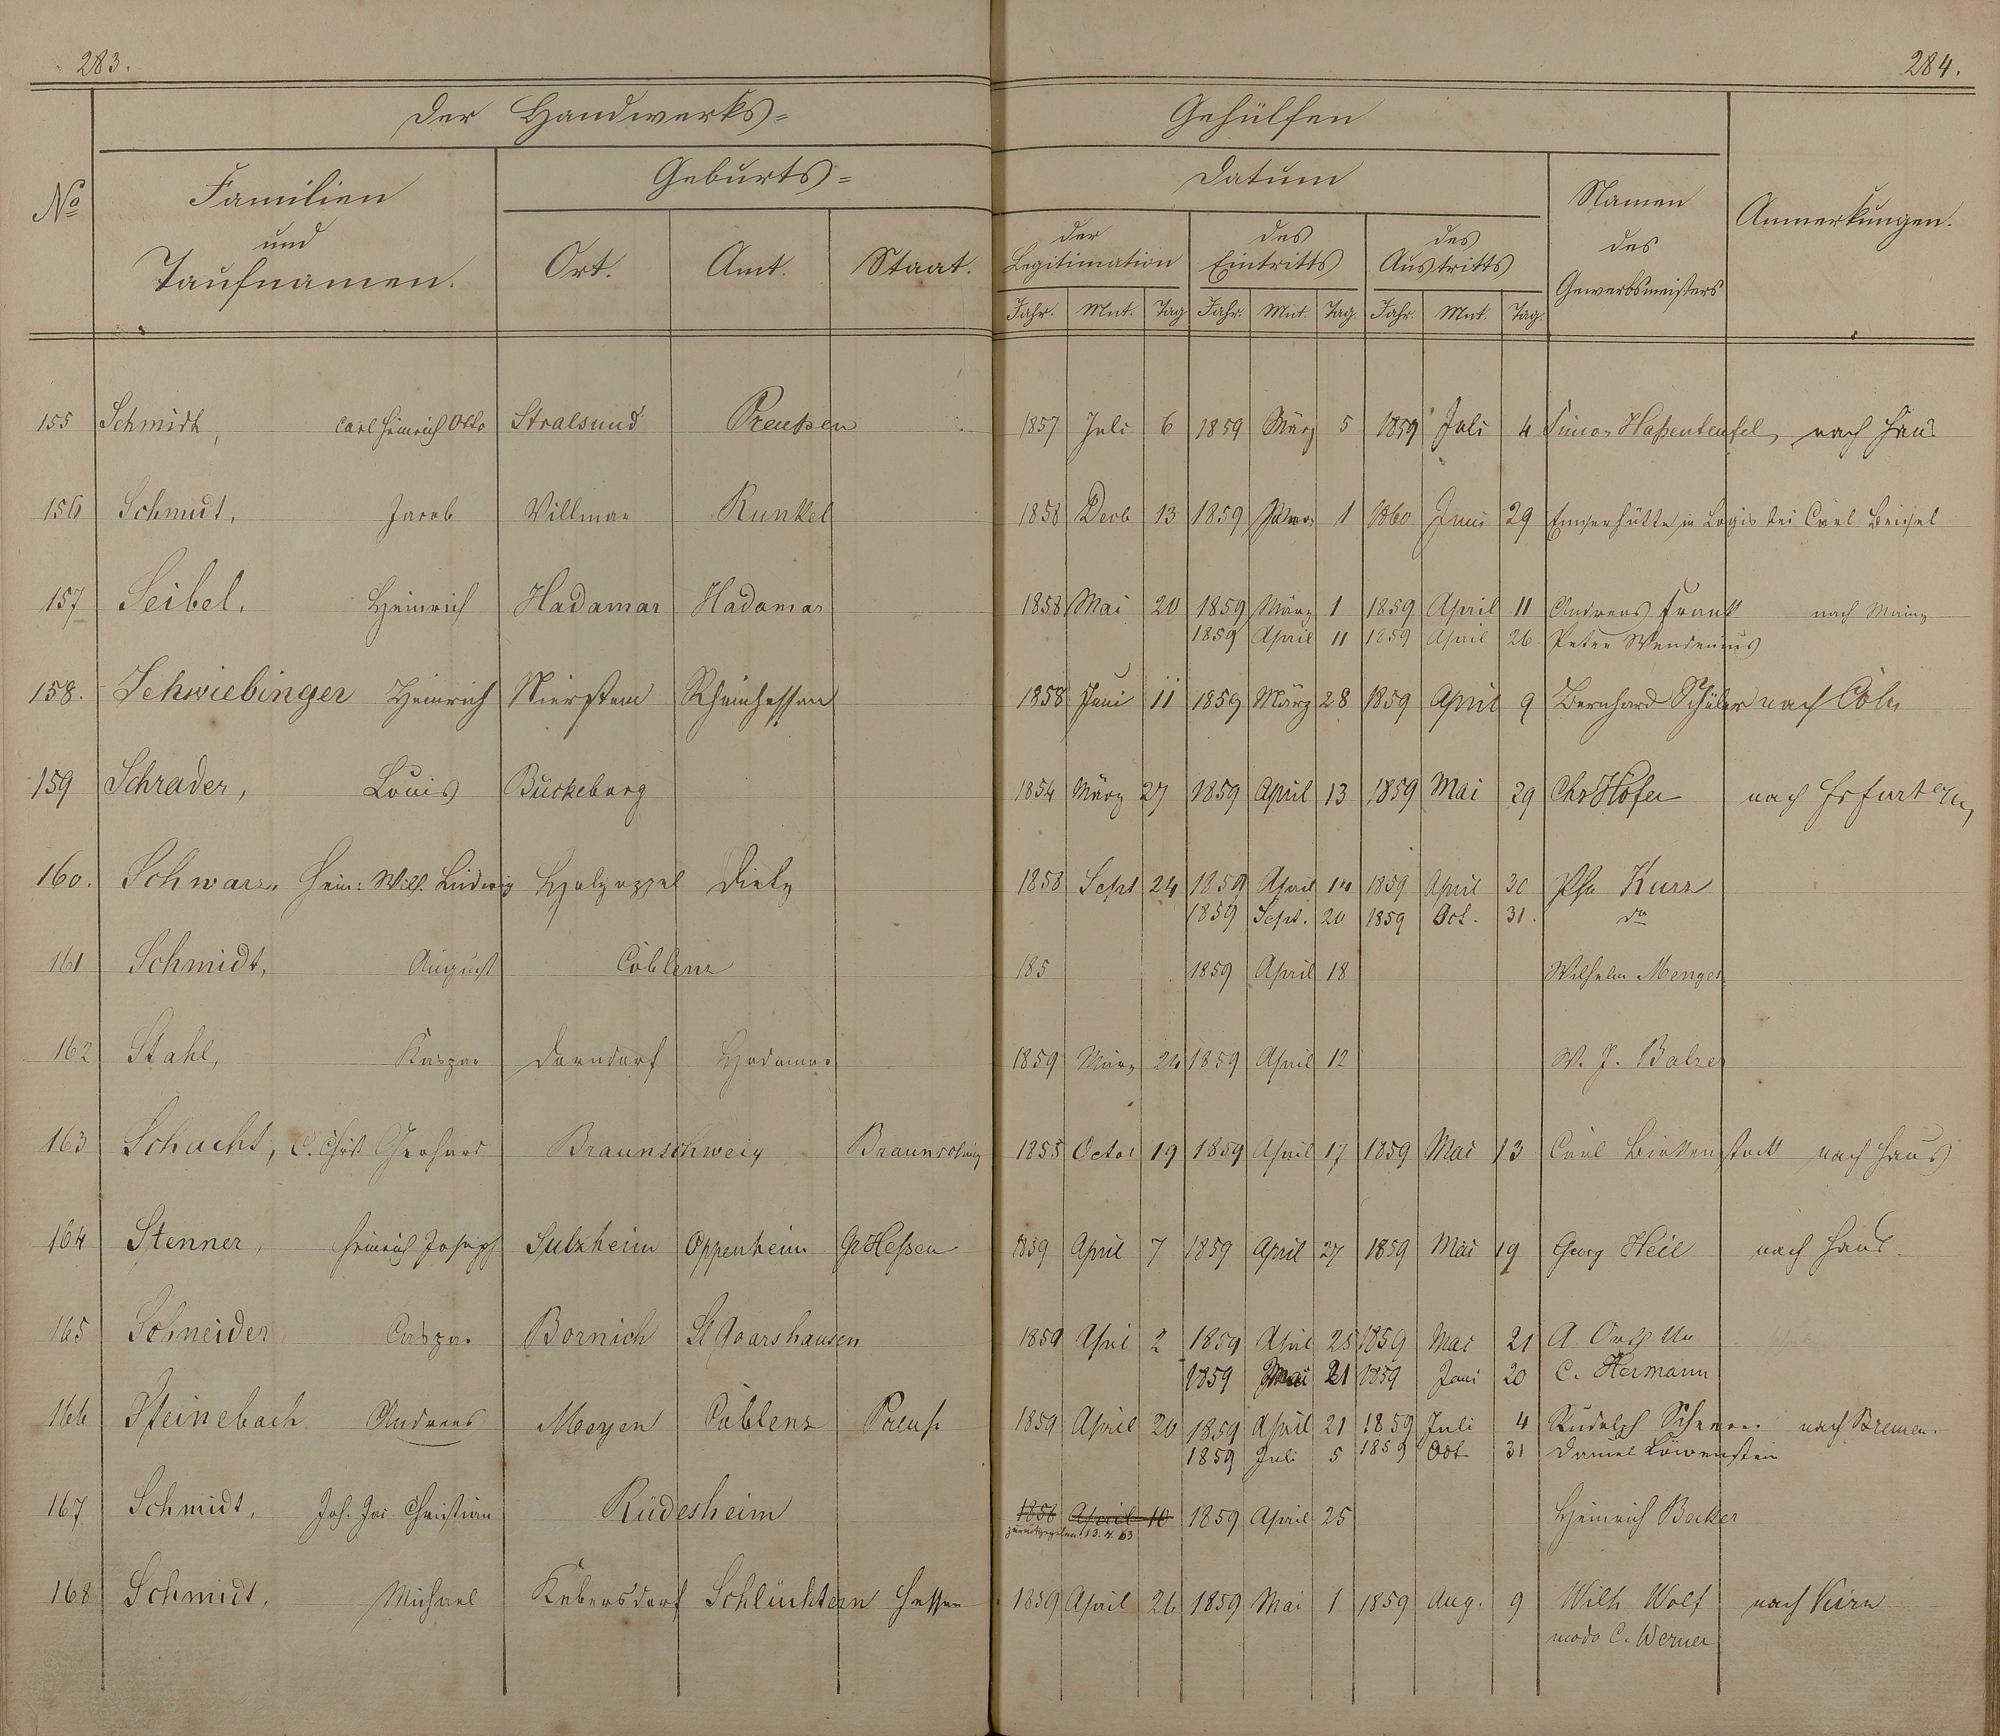 283.
284.
Der Handwerks=
Gehülfen
No
Familien
und
Taufnamen.
Geburts=
Ort.
Amt.
Staat.
Datum
der
Legitimation
des
Eintritts
des
Austritts
Jahr. Mnt. Tag Jahr. Mnt. Tag. Jahr. Mnt. Tag.
Namen
des
Gewerbsmeisters
Anmerkungen.
155 Schmidt, Carl Heinrich Otto Stralsund Preußen 1857 Juli 6 1859 März 5 1859 Juli 4 Simon Haßenteufel, nach Haus
156 Schmidt, Jacob Villmar Runkel 1858 Decb 13 1859 1 1860 Juni 29 Emserhütte in Logis bei Carl
157 Seibel, Heinrich Hadamar Hadamar 1858 Mai 20 1859 März 1 1859 April 11 Andreas Frank nach Mainz
1859 April 11 1859 April 26 Peter Wendenius
158. Schwiebinger Heinrich Nierstein Rheinhessen 1858 Juni 11 1859 März 28 1859 April 9 Bernhard Schüler nach Cöln
159 Schrader, Louis Bückeburg 1854 März 27 1859 April 13 1859 Mai 29 Chr Höfer nach Erfurt
160. Schwarz, Hein: Wilh. Ludwig Holzappel Dietz 1858 Sept 24 1859 April 14 1859 April 30 Phr Kurz
1859 Sept. 20 1859 Oct. 31. do
161 Schmidt, August Coblenz 185 1859 April 18 Wilhelm Menges
162 Stahl, Kaspar Dorndorf Hadamar 1859 März 24 1859 April 12 W. J. Balzer
163 Schacht, C. Christ Gerhard Braunschweig Braunschweig 1855 Octob 19 1859 April 17 1859 Mai 13 Carl Birkenstock nach Haus
164 Stenner, Heinrich Joseph Sulzheim Oppenheim Gr Heßen 1859 April 7 1859 April 27 1859 Mai 19 Georg Heil nach Haus.
165 Schneider Caspar Bornich St Goarshausen 1859 April 2 1859 April 25 1859 Mai 21 A.
1859 Mai 21 1859 Juni 20 C. Hermann
166 Steinebach Andreas Meyen Coblenz Preuß. 1859 April 20 1859 April 21 1859 Juli 4 Rudolph nach Bremen.
1859 Juli 5 1859 Oct. 31 Daniel Löwenstein
167 Schmidt, Joh. Jac. Christian Rüdesheim 1856 April 10 1859 April 25 Heinrich Becker
zurückgegeben 13. 4. 63
168 Schmidt, Michael Schlüchtern Hessen 1859 April 26 1859 Mai 1 1859 Aug. 9 Wilh Wolf nach Kirn
modo C. Werner